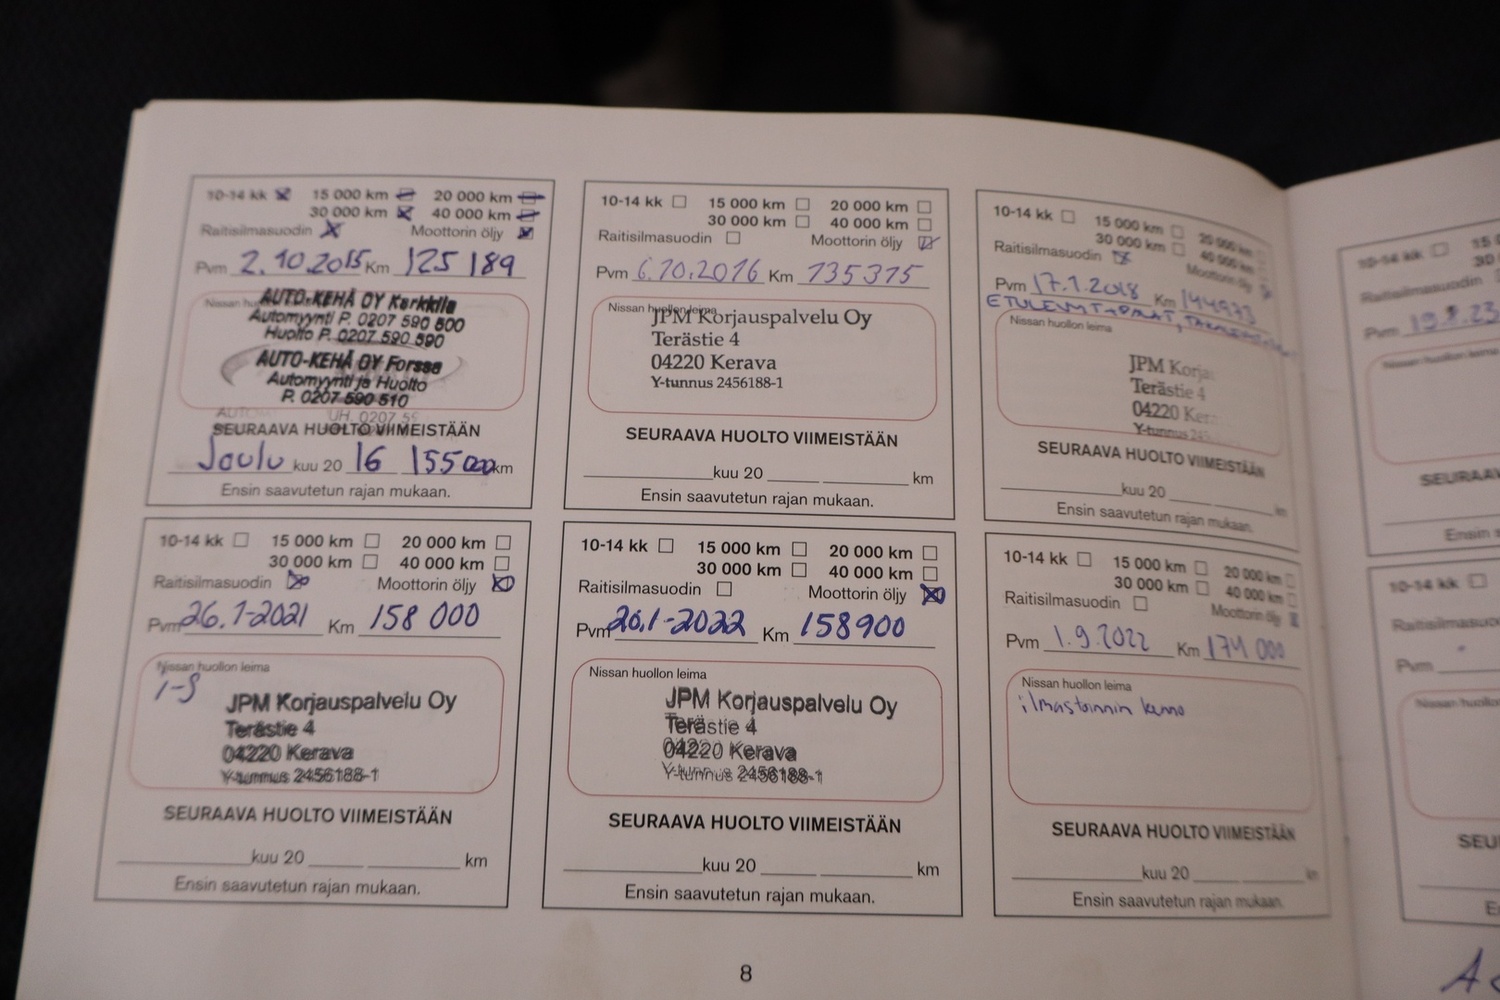 10-14 kk 15 000 km 20 000 km
30 000 km 40 000 km
Raitisilmasuodin Moottorin öljy
Pvm 2.10.2015 Km 125 189
Nissan
AUTO-KEHÄ OY Karkkila
Automyynti P. 0207 590 500
Huolto P. 0207 590 590
AUTO-KEHÄ OY Forssa
Automyynti ja Huolto
P. 0207 590 510
SEURAAVA HUOLTO VIIMEISTÄÄN
Joulu kuu 20 16 155000 km
Ensin saavutetun rajan mukaan.
10-14 kk 15 000 km 20 000 km
30 000 km 40 000 km
Raitisilmasuodin Moottorin öljy
Pvm 6.10.2016 Km 135375
Nissan huollon leima
JPM Korjauspalvelu Oy
Terästie 4
04220 Kerava
Y-tunnus 2456188-1
SEURAAVA HUOLTO VIIMEISTÄÄN
kuu 20 km
Ensin saavutetun rajan mukaan.
10-14 kk 15 000 km 20 000 km
30 000 km 40 000 km
Raitisilmasuodin Moottorin öljy
Pvm 17.1.2018 Km 144973
Nissan huollon leima
JPM
Terästie 4
04220
Y-tunnus
SEURAAVA HUOLTO VIIMEISTÄÄN
kuu 20 km
Ensin saavutetun rajan mukaan.
10-14 kk 15 000 km 20 000 km
30 000 km 40 000 km
Raitisilmasuodin Moottorin öljy
Pvm 26.1-2021 Km 158 000
Nissan huollon leima
JPM Korjauspalvelu Oy
Terästie 4
04220 Kerava
Y-tunnus 2456188-1
SEURAAVA HUOLTO VIIMEISTÄÄN
kuu 20 km
Ensin saavutetun rajan mukaan.
10-14 kk 15 000 km 20 000 km
30 000 km 40 000 km
Raitisilmasuodin Moottorin öljy
Pvm 20.1-2022 Km 158900
Nissan huollon leima
JPM Korjauspalvelu Oy
Terästie 4
04220 Kerava
Y-tunnus 2456188-1
SEURAAVA HUOLTO VIIMEISTÄÄN
kuu 20 km
Ensin saavutetun rajan mukaan.
10-14 kk 15 000 km 20 000 km
30 000 km 40 000 km
Raitisilmasuodin Moottorin öljy
Pvm 1.9.2022 Km 174 000
Nissan huollon leima
ilmastoinnin kenno
SEURAAVA HUOLTO VIIMEISTÄÄN
kuu 20 km
Ensin saavutetun rajan mukaan.
8
10-14 kk
Pvm
SEURAAVA
Ensin
10-14 kk
Pvm